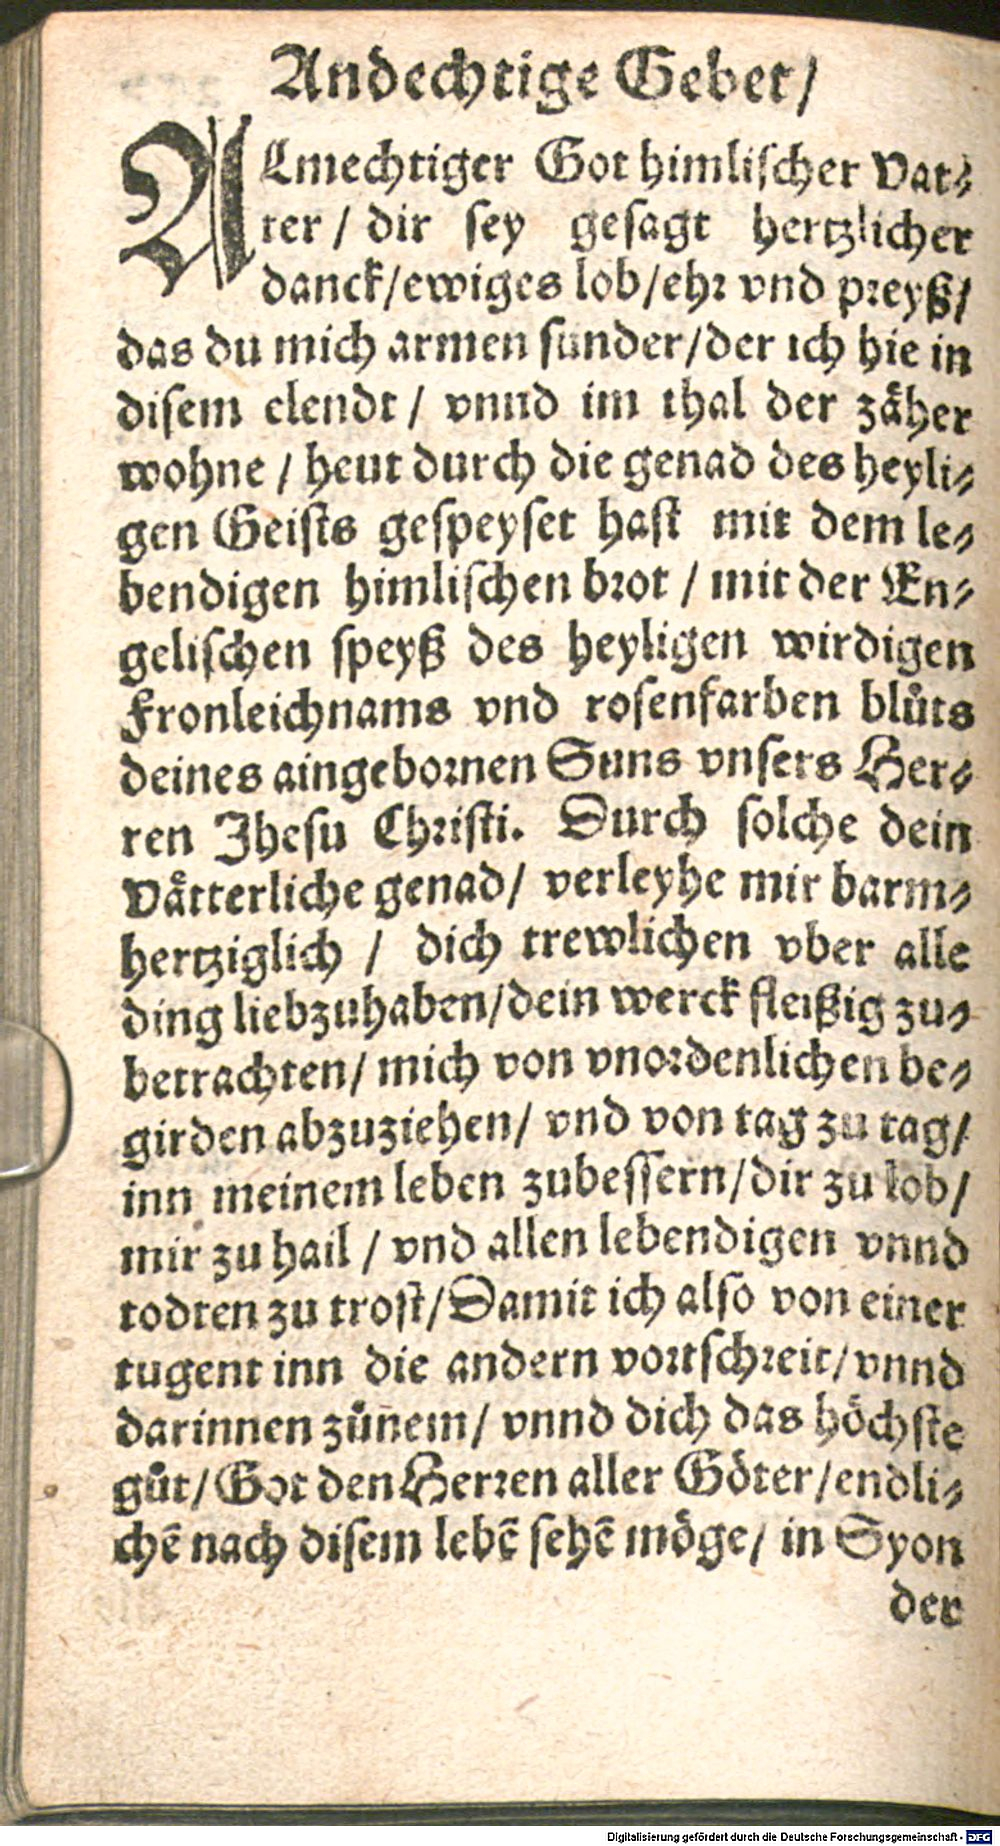 Andechtige Gebet/
ALmechtiger Got himlischer Vat⸗
ter / dir sey gesagt hertzlicher
danck/ewiges lob/ehr vnd preyß/
das du mich armen sunder/der ich hie in
disem elendt / vnnd im thal der zäher
wohne / heut durch die genad des heyli⸗
gen Geists gespeyset hast mit dem le⸗
bendigen himlischen brot / mit der En⸗
gelischen speyß des heyligen wirdigen
Fronleichnams vnd rosenfarben blůts
deines aingebornen Suns vnsers Her⸗
ren Jhesu Christi. Durch solche dein
Vätterliche genad/ verleyhe mir barm⸗
hertziglich / dich trewlichen vber alle
ding liebzuhaben/dein werck fleißig zu⸗
betrachten/ mich von vnordenlichen be⸗
girden abzuziehen/ vnd von tag zu tag/
inn meinem leben zubessern/dir zu lob/
mir zu hail / vnd allen lebendigen vnnd
todten zu trost/Damit ich also von einer
tugent inn die andern vortschreit/vnnd
darinnen zůnem/ vnnd dich das höchste
gůt/Got den Herren aller Göter/endli⸗
chē nach disem lebē sehē möge/ in Syon
der
Digitalisierung gefördert durch die Deutsche Forschungsgemeinschaft - DFG